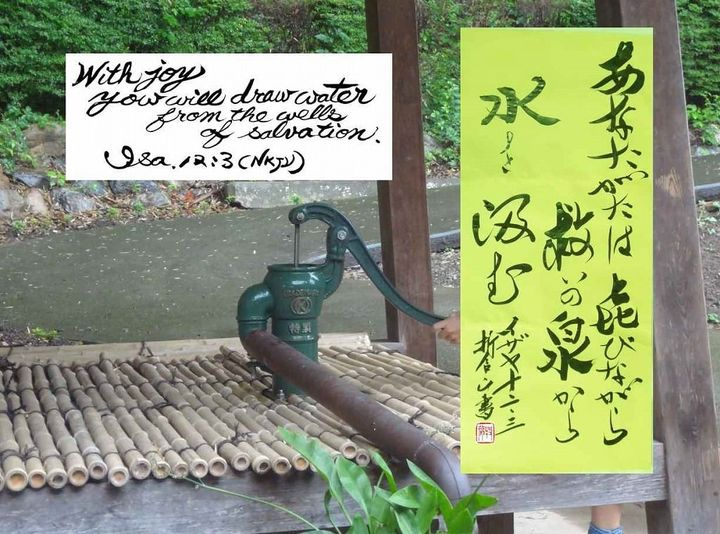 With joy
you will draw water
from the wells
of salvation.
Isa. 12:3 (NKJV)
あなたがたは喜びながら
救いの泉から
水を汲む
イザヤ十二・三
特製